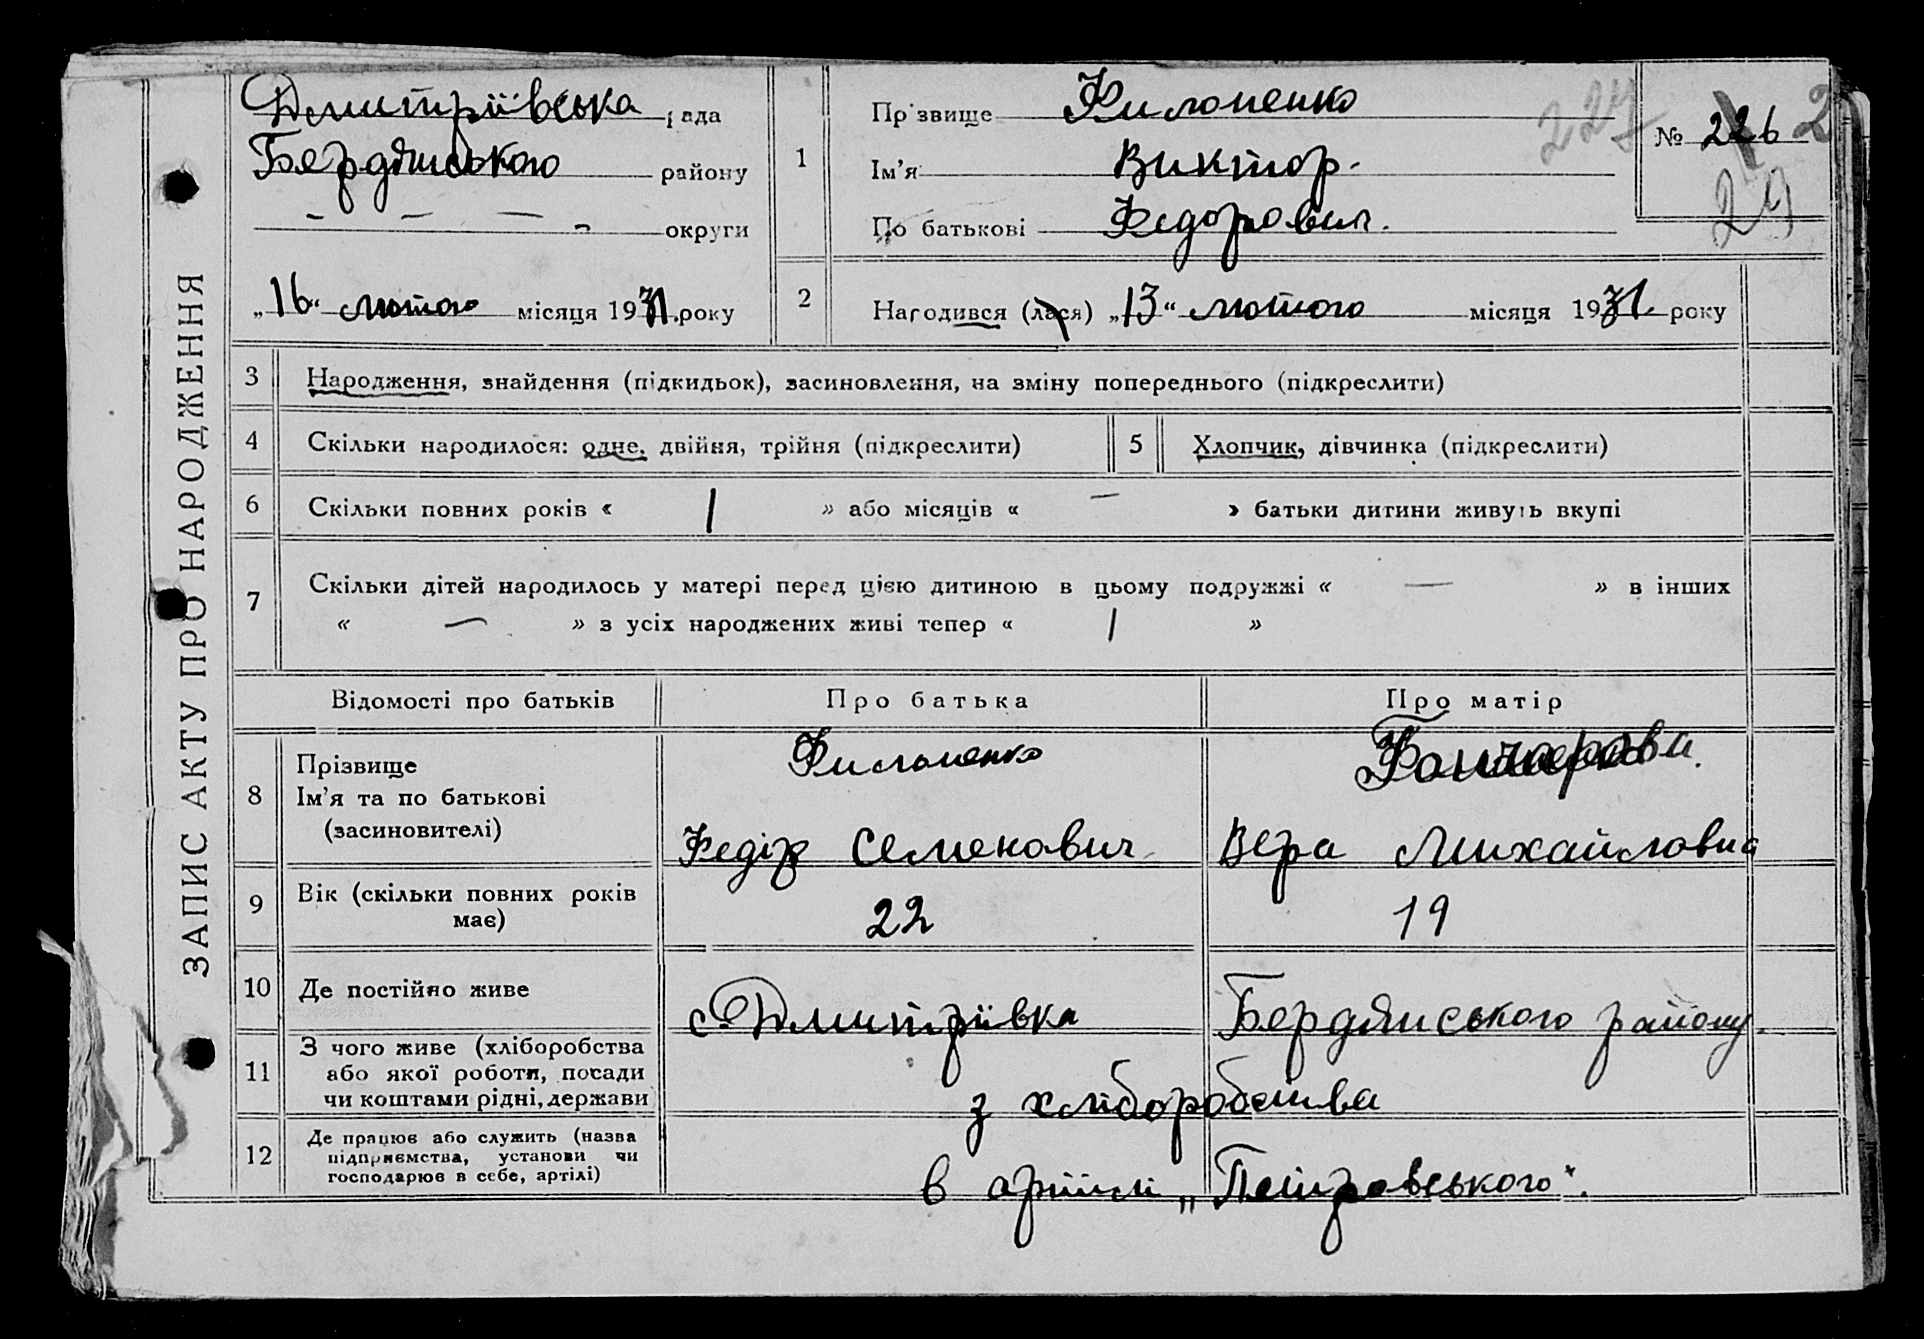 ЗАПИС АКТУ ПРО НАРОДЖЕННЯ
Дмитріївська рада
Бердянського району
округи
„16“ лютого місяця 1931 року
1
Прізвище Филоненко
Ім'я Виктор.
По батькові Федорович.
№ 226
227
29
2
2 Народився (лася) „13“ лютого місяця 1931. року
3 Народження, знайдення (підкидьок), засиновлення, на зміну попереднього (підкреслити)
4 Скільки народилося: одне, двійня, трійня (підкреслити) 5 Хлопчик, дівчинка (підкреслити)
6 Скільки повних років « 1 » або місяців « — » батьки дитини живуть вкупі
7 Скільки дітей народилось у матері перед цією дитиною в цьому подружжі « — » в інших
« — » з усіх народжених живі тепер « 1 »
Відомості про батьків Про батька Про матір
8 Прізвище
Ім'я та по батькові
(засиновителі)
Филоненко
Федір Семенович
Вера Михайловна
9 Вік (скільки повних років має) 22 19
10 Де постійно живе с Дмитріївка Бердянського району.
11 З чого живе (хліборобства
або якої роботи, посади
чи коштами рідні, держави
з хліборобства
12 Де працює або служить (назва
підприємства, установи чи
господарює в себе, артілі)
в артілі „Петровського“.